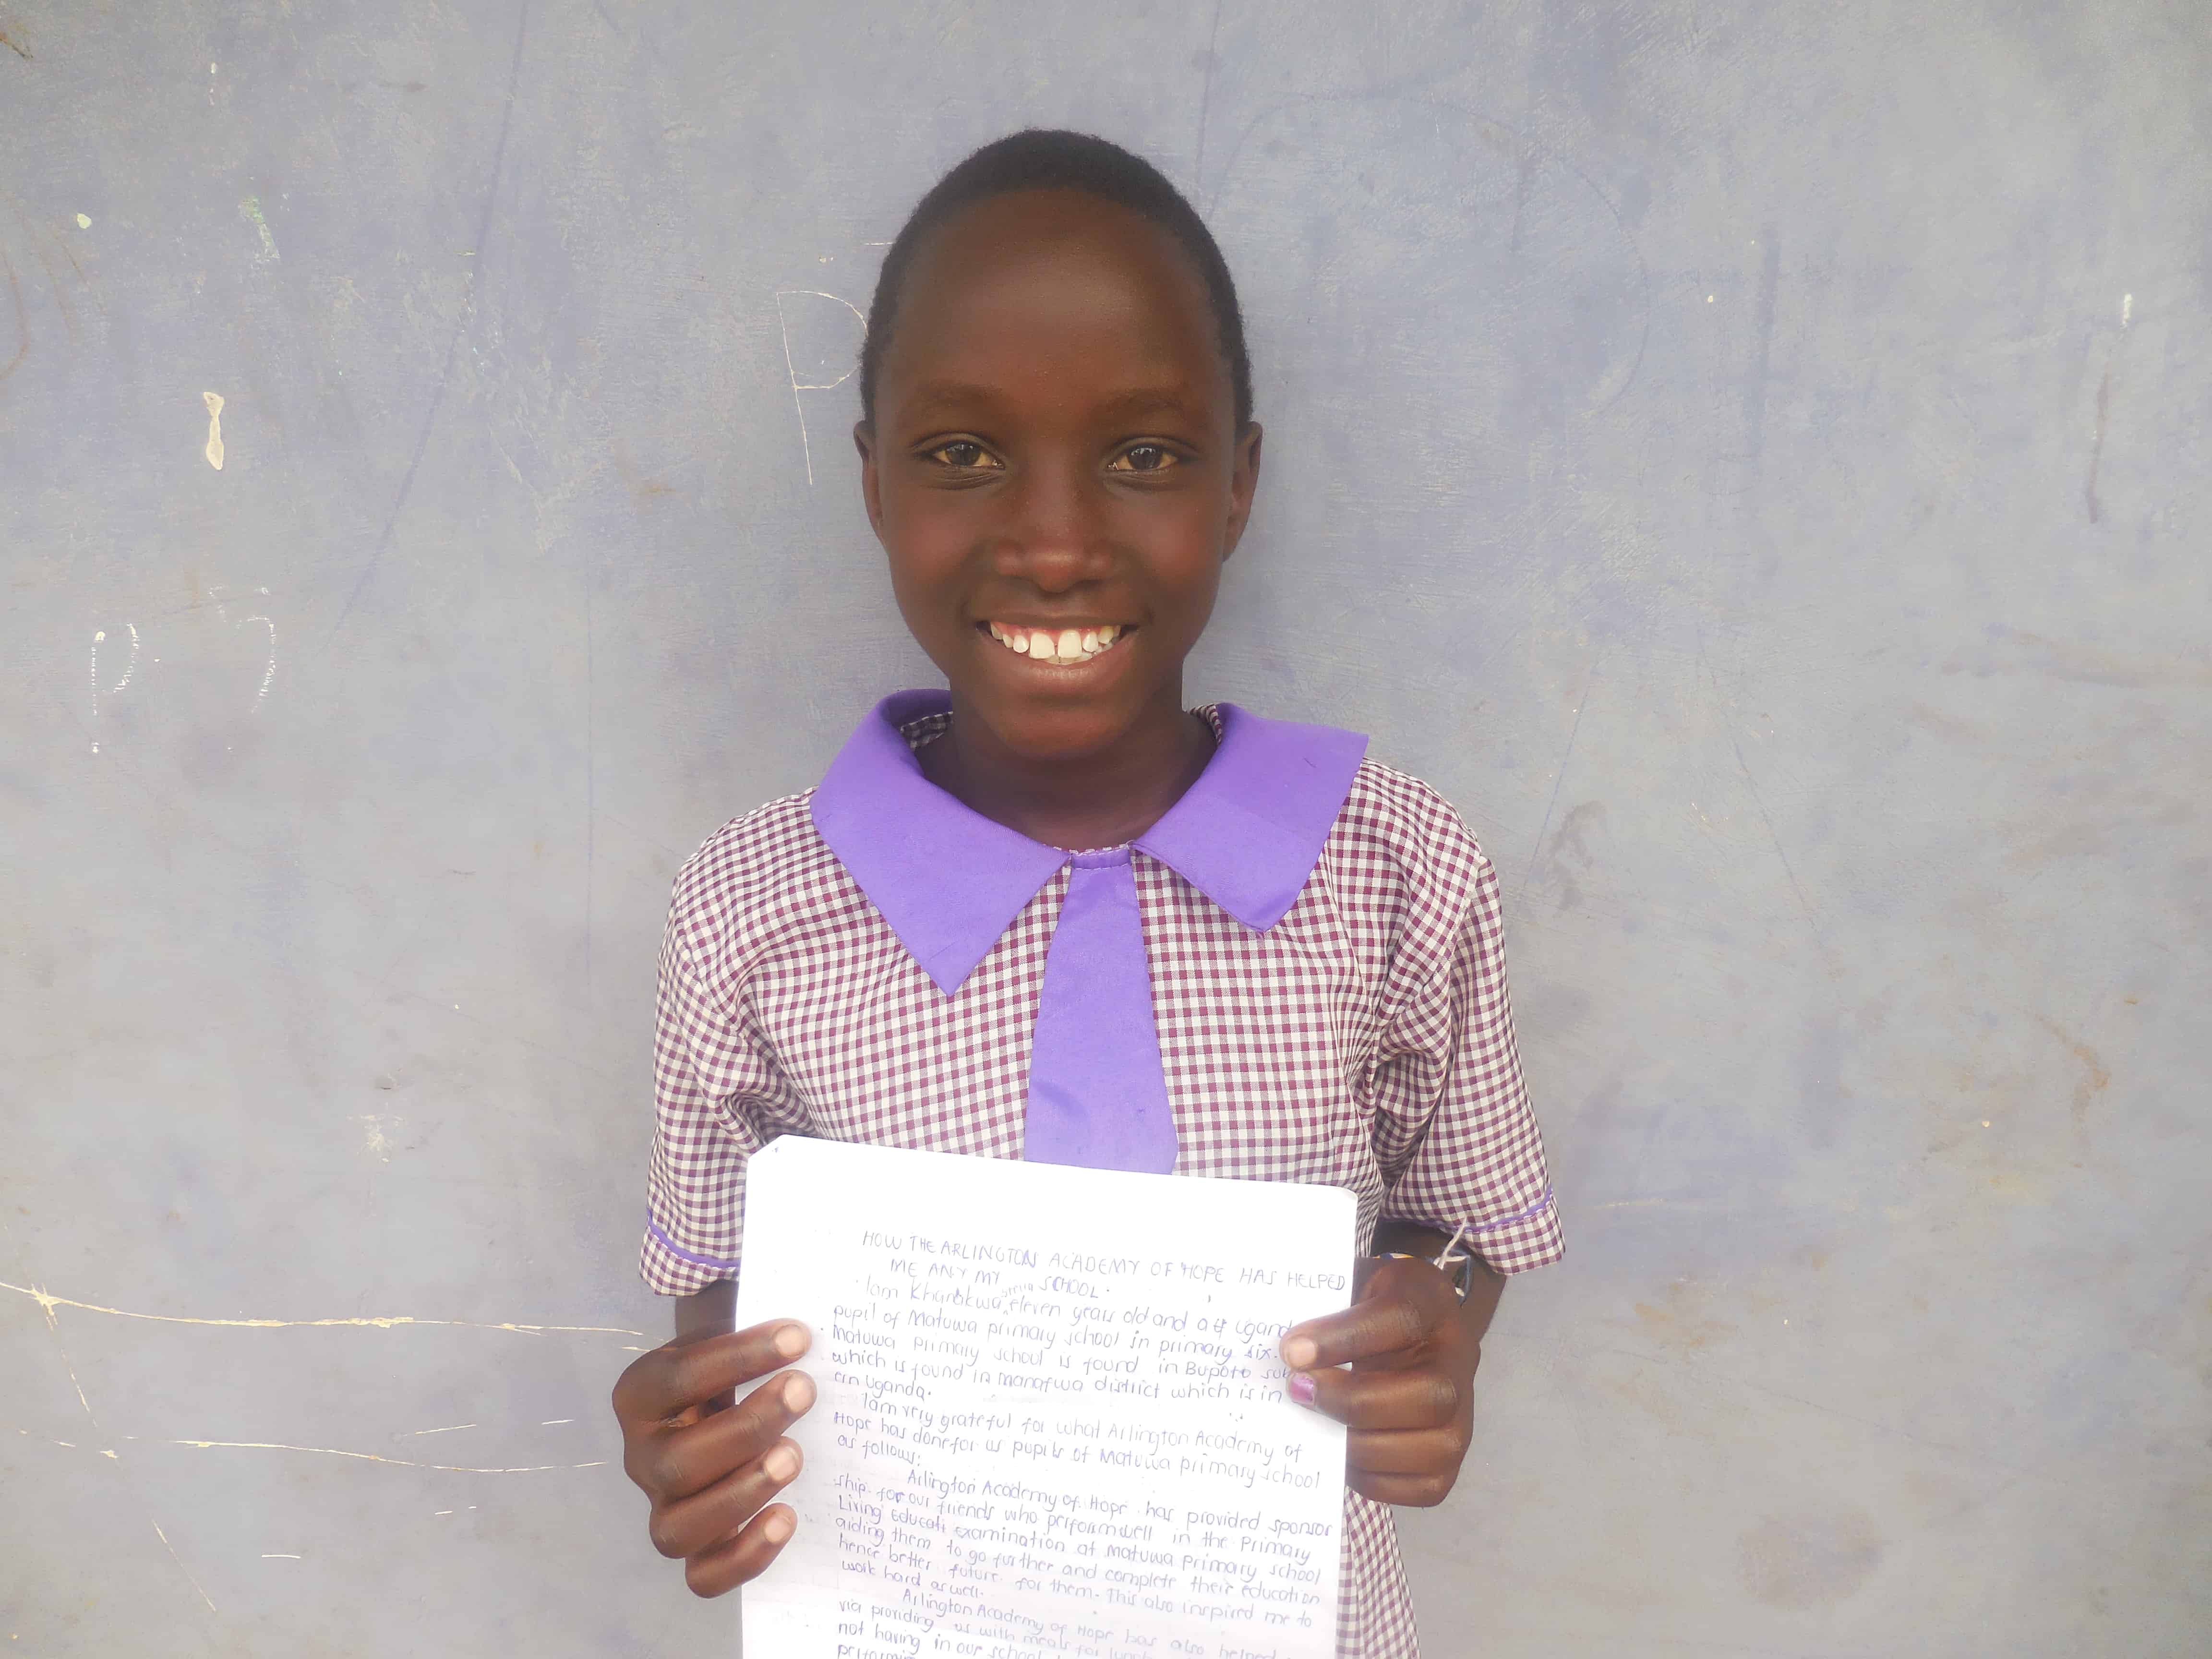 P
P
HOW THE ARLINGTON ACADEMY OF HOPE HAS HELPED
ME ANY MY SCHOOL.
Iam Kharakwa stella eleven years old and a Ugand
pupil of Matuwa primary school in primary six.
Matuwa primary school is found in Bupoto sub
which is found in manafwa district which is in
Uganda.
Iam very grateful for what Arlington Academy of
Hope has done for us pupils of Matuwa primary school
as follows;
Arlington Academy of Hope has provided sponsor
ship for our friends who perform well in the Primary
Living Educati examination at Matuwa primary school
aiding them to go further and complete their education
hence better future for them. This also inspired me to
work hard as well.
Arlington Academy of Hope has also helped
via providing us with meals for lunch
not having in our school